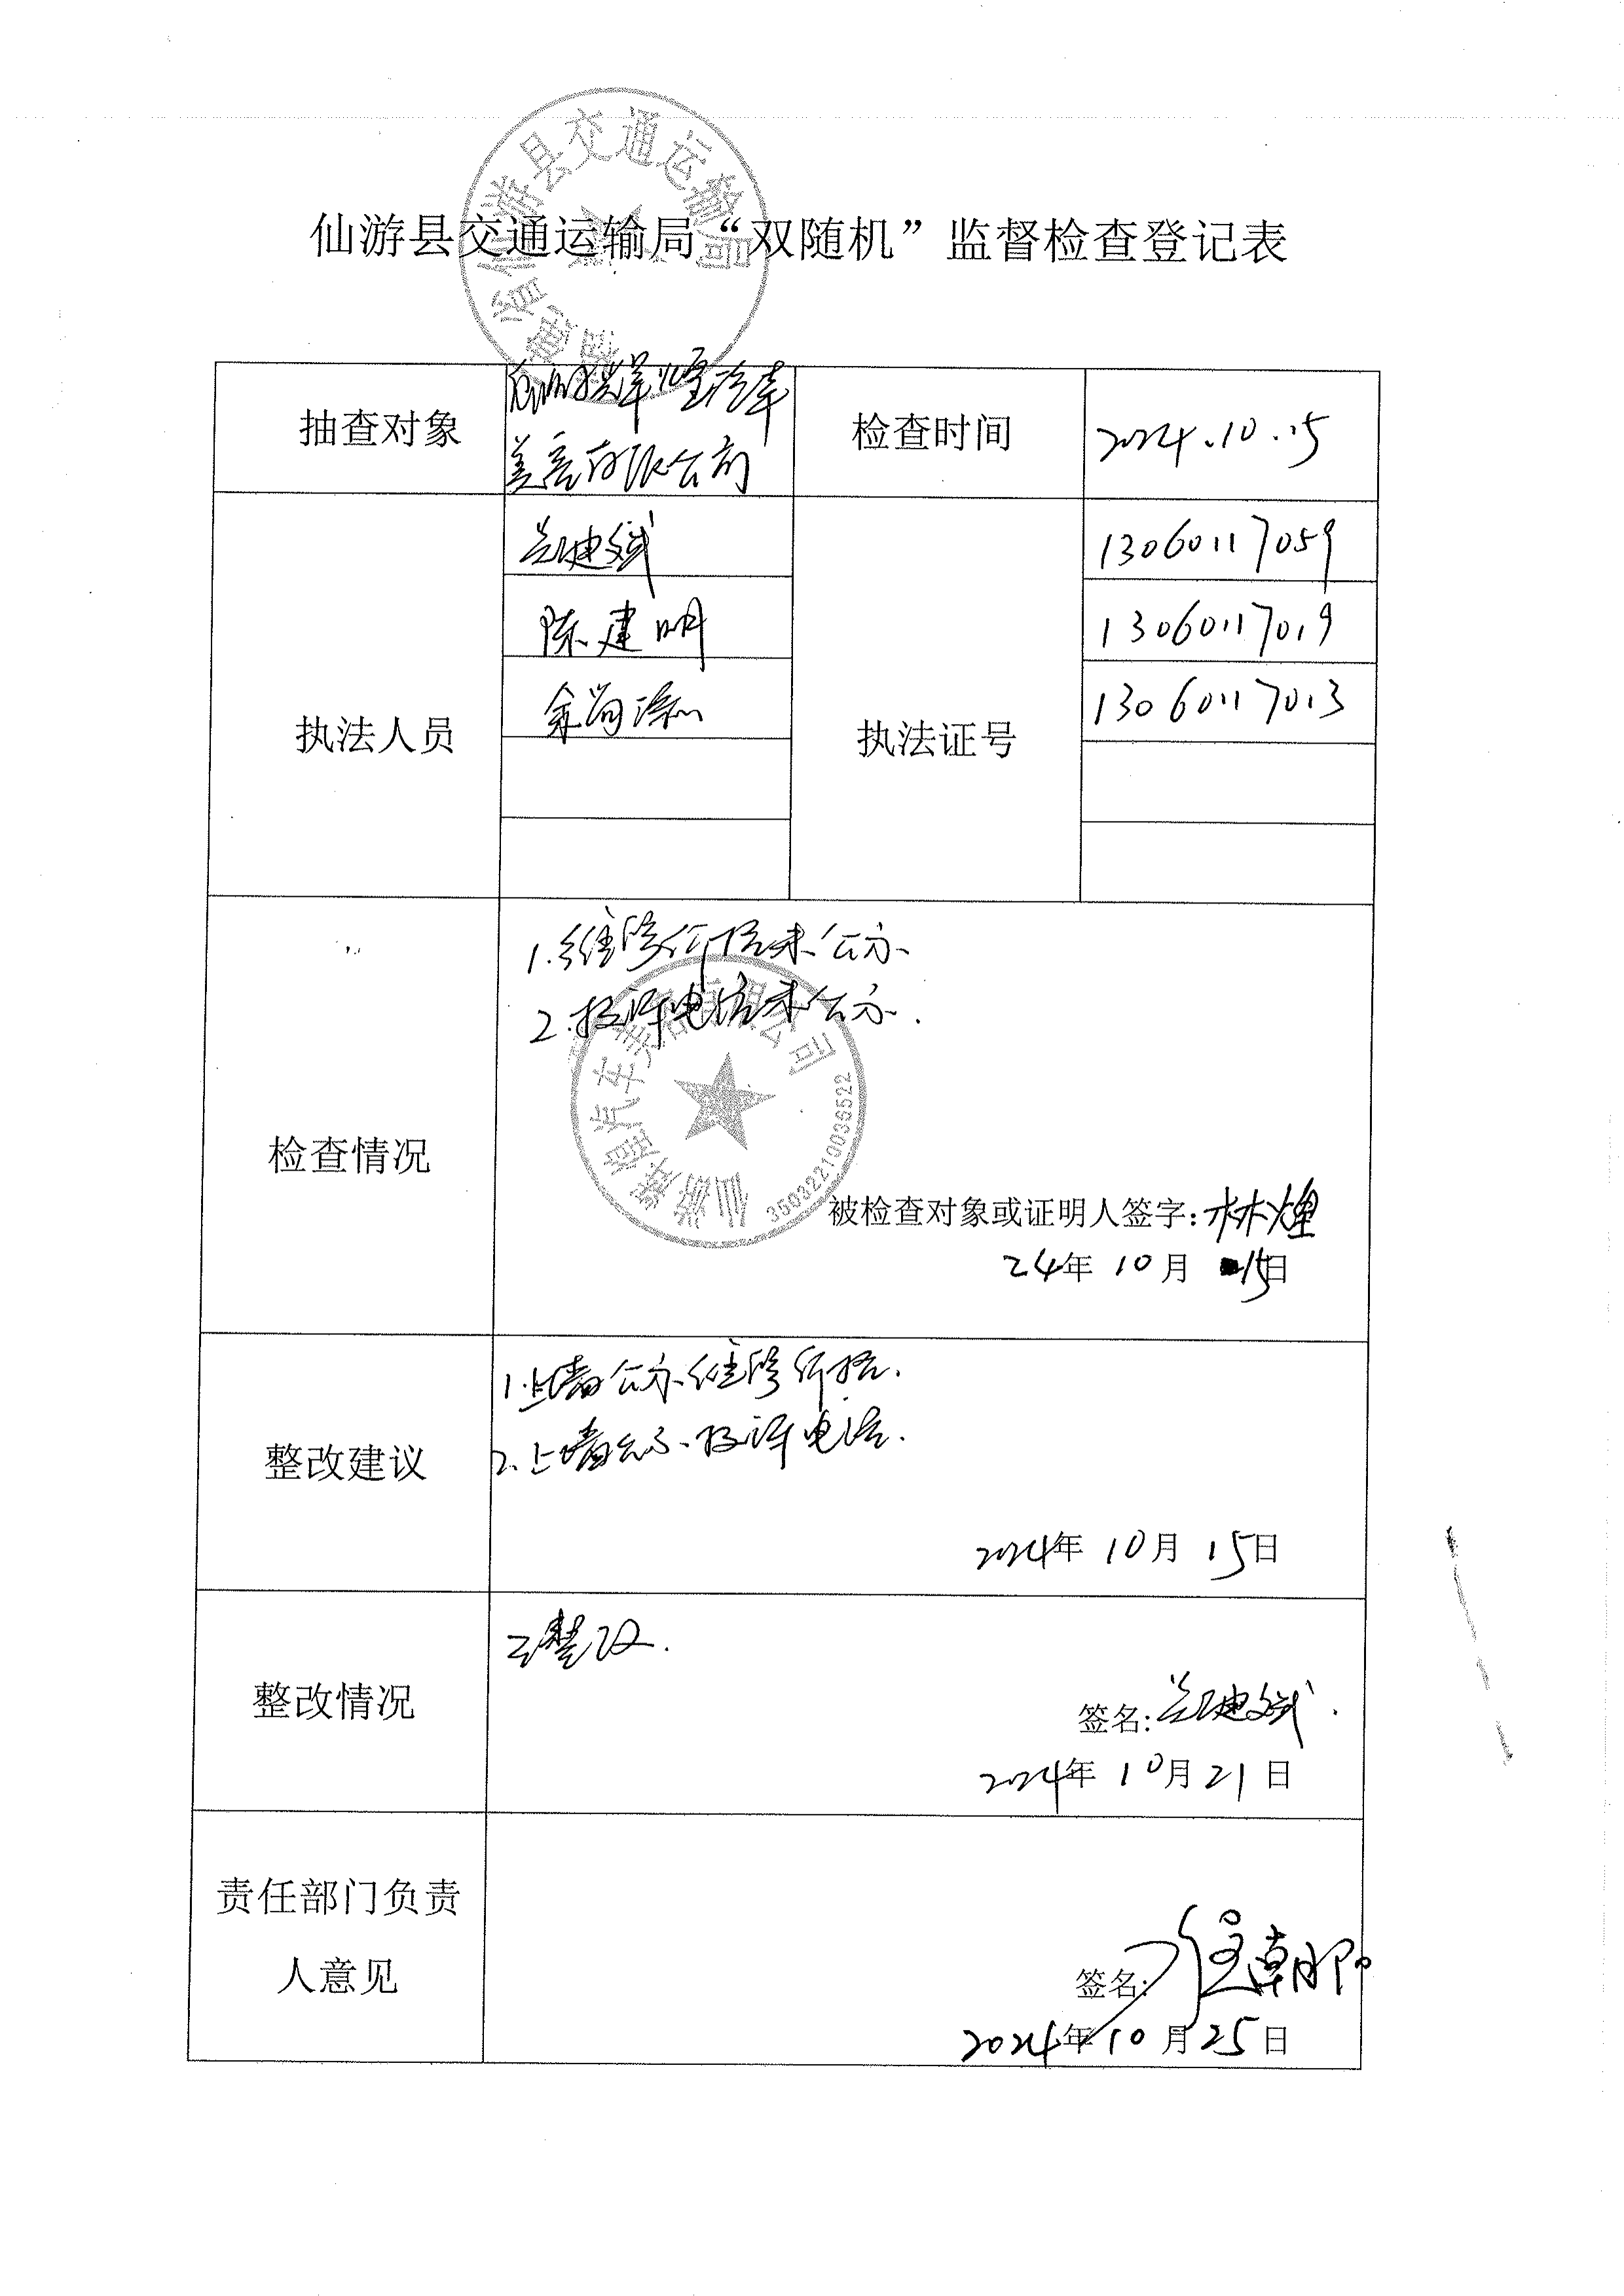 仙游县交通运输局“双随机”监督检查登记表
抽查对象
仙游辉煌汽车
美容有限公司
检查时间
2024.10.15
执法人员
陈建明
执法证号
13060117059
13060117019
13060117013
检查情况
1.维修价格未公示
2.投诉电话未公示.
仙游辉煌汽车美容有限公司
35032210036522
被检查对象或证明人签字:林煌
24年10月15日
整改建议
1.上墙公示维修价格.
2.上墙公示投诉电话.
2024年10月15日
整改情况
已整改.
签名:
2024年10月21日
责任部门负责
人意见
签名:
2024年10月25日